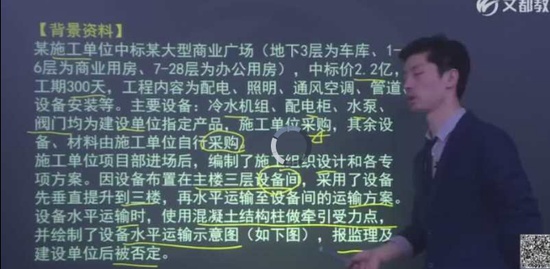 文都教
【背景资料】
某施工单位中标某大型商业广场（地下3层为车库、1-
6层为商业用房、7-28层为办公用房），中标价2.2亿，
工期300天，工程内容为配电、照明、通风空调、管道、
设备安装等。主要设备：冷水机组、配电柜、水泵、
阀门均为建设单位指定产品，施工单位采购，其余设
备、材料由施工单位自行采购。
施工单位项目部进场后，编制了施工组织设计和各专
项方案。因设备布置在主楼三层设备间，采用了设备
先垂直提升到三楼，再水平运输至设备间的运输方案。
设备水平运输时，使用混凝土结构柱做牵引受力点，
并绘制了设备水平运输示意图（如下图），报监理及
建设单位后被否定。